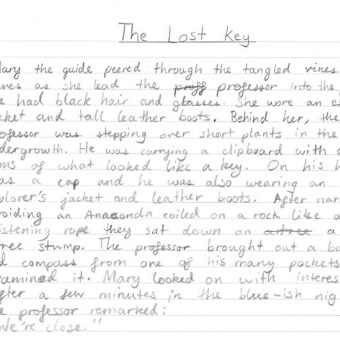 The Lost Key
Mary the guide peered through the tangled vines
as she lead the proff professor into the
had black hair and glasses. She wore an
and tall leather boots. Behind her, the
professor was stepping over short plants in the
undergrowth. He was carrying a clipboard with
of what looked like a key. On his
a cap and he was also wearing an
explorer's jacket and leather boots. After
avoiding an Anaconda coiled on a rock like a
glistening rope they sat down on a tree a
tree stump. The professor brought out a
compass from one of his many pockets
examined it. Mary looked on with
After a few minutes in the blue-ish
professor remarked:
"We're close."